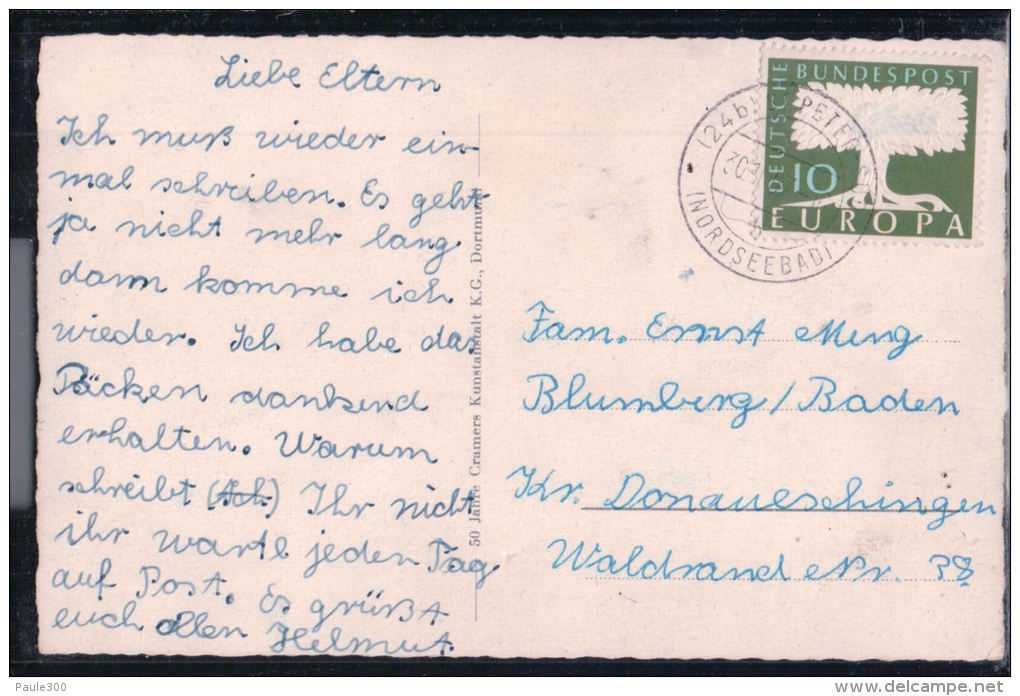 Liebe Eltern
Ich muß wieder ein-
mal schreiben. Es geht
ja nicht mehr lang
dann komme ich
wieder. Ich habe das
Päcken dankend
erhalten. Warum
schreibt (Ich) Ihr nicht
ihr warte jeden Tag
auf Post. Es grüßt
euch allen Helmut.
50 Jahre Cramers Kunstanstalt K.G., Dortmund
DEUTSCHE
BUNDESPOST
10
EUROPA
(24b) PETER
30.
(NORDSEEBAD)
Fam. Ernst Meng
Blumberg/Baden
Kr. Donaueschingen
Waldrand Nr. 38
Paule300
delcampe.net